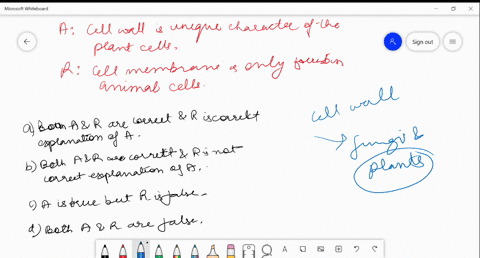 Microsoft Whiteboard
Sign out
A: Cell wall is unique character of the
plant cells.
R: Cell membrane is only found in
animal cells.
a) Both A & R are correct & R is correct
explanation of A.
b) Both A & R are correct & R is not
correct explanation of A.
c) A is true but R is false.
d) Both A & R are false.
cell wall
→ fungi &
plants